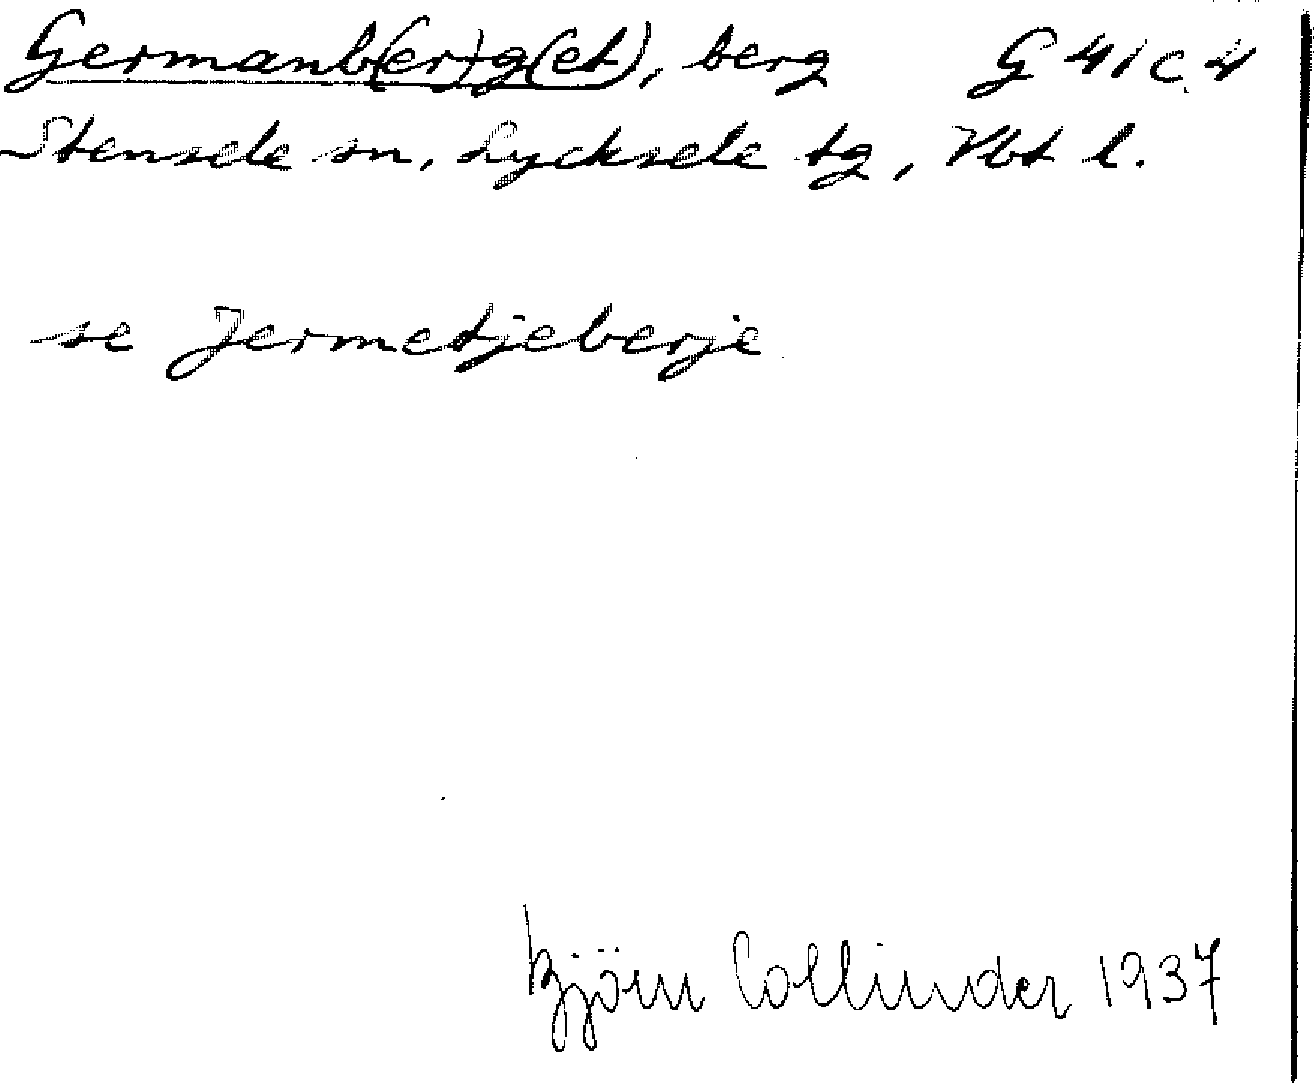 Germanb(er)g(et), berg G 41 c. v
Stensele sn, Lycksele tg, Vbt l.
se Jermetjeberje
Björn Collinder 1937